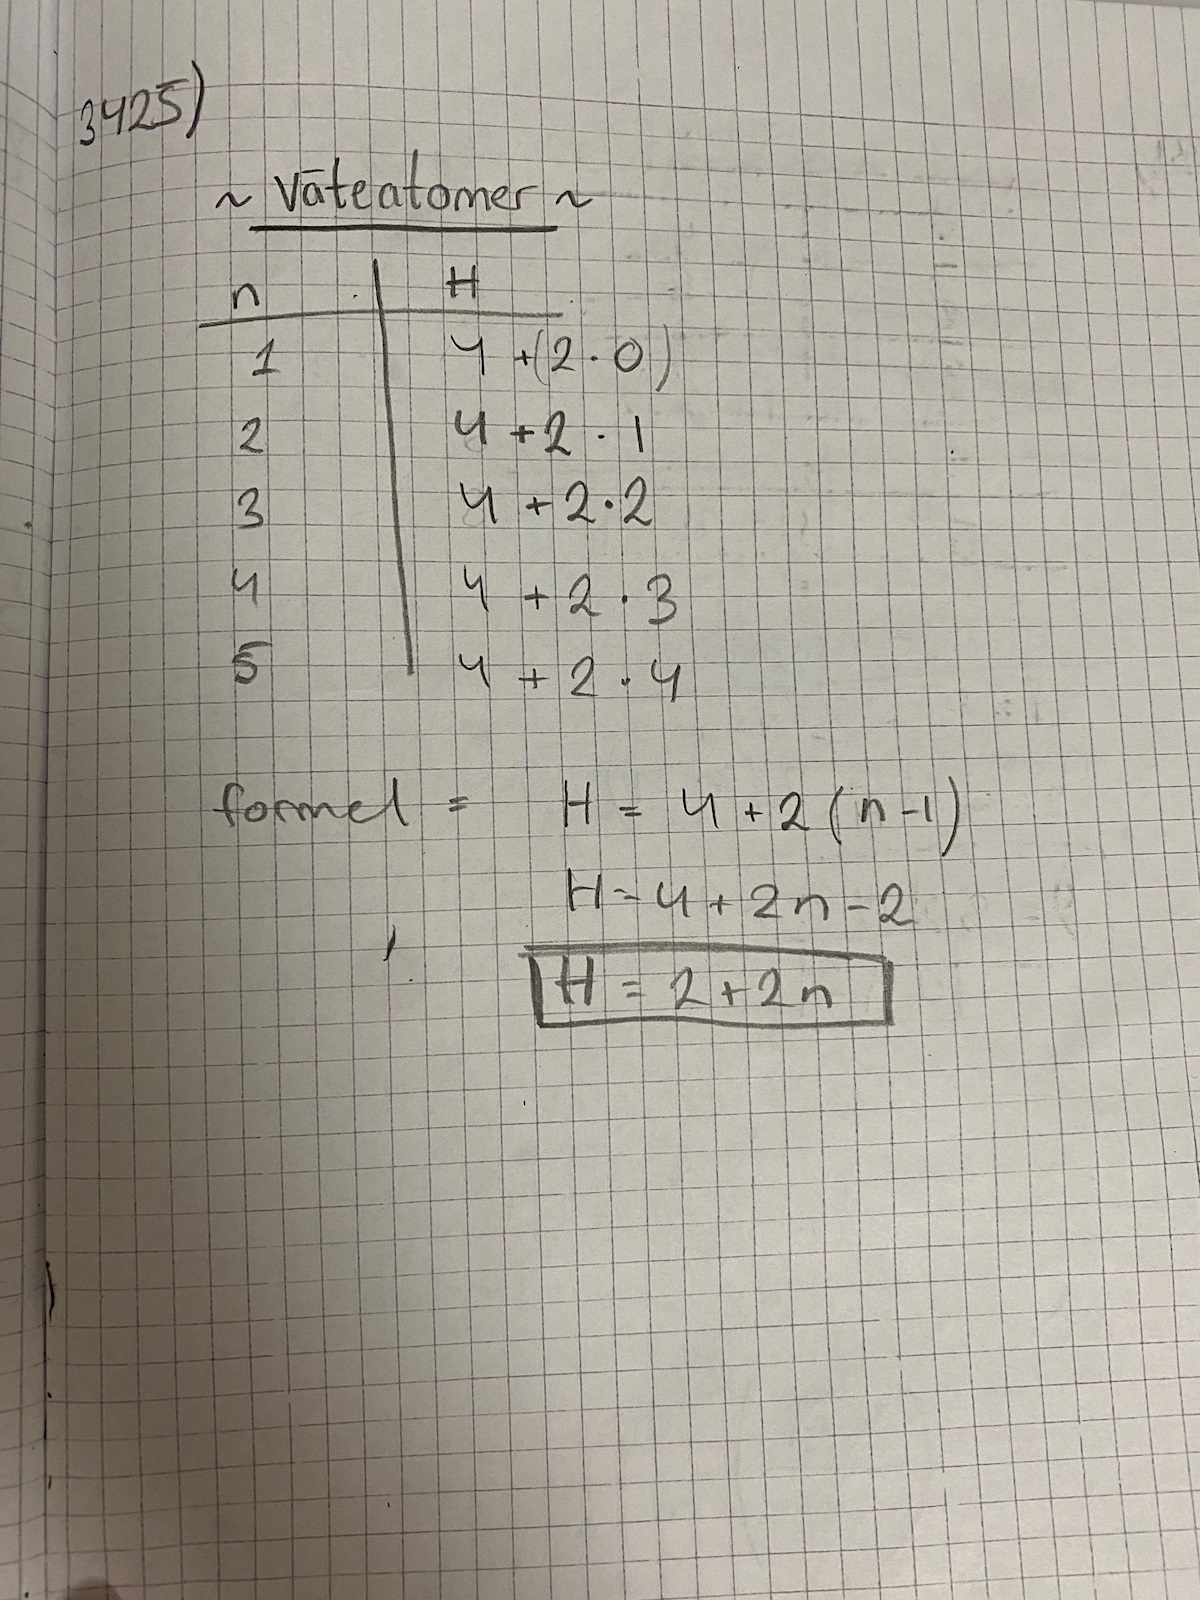 3425)
~ Väteatomer ~
n H
1 4 + (2 · 0)
2 4 + 2 · 1
3 4 + 2 · 2
4 4 + 2 · 3
5 4 + 2 · 4
formel = H = 4 + 2 (n - 1)
H = 4 + 2n - 2
H = 2 + 2n